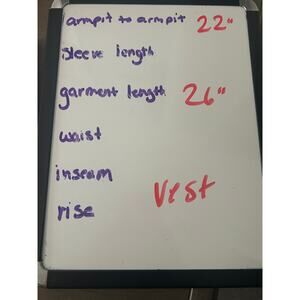 armpit to armpit 22"
sleeve length
garment length 26"
waist
inseam
rise
vest